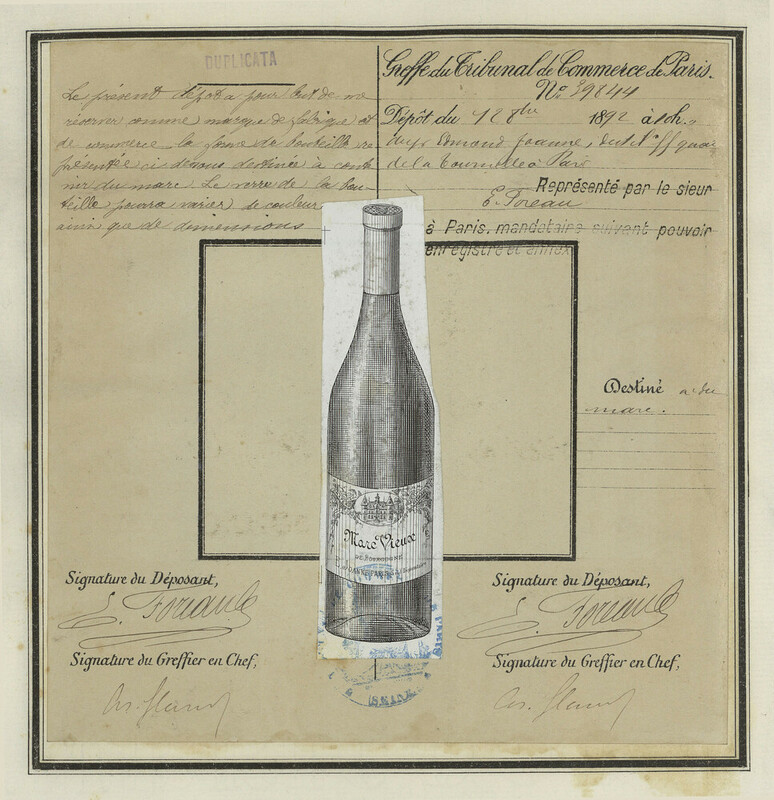 DUPLICATA
Le présent dépôt a pour but de me
réserver comme marque de fabrique et
de commerce la forme de bouteille re
présentée ci dessous destinée à conte
nir du marc. Le verre de la bou-
teille pourra varier de couleur
ainsi que de dimensions
Greffe du Tribunal de Commerce de Paris.
No 39844
Dépôt du 12 8bre 1892 à 10h.
du sr Edmond Joanne, quai
de la Tournelle à Paris
Représenté par le sieur
E. Foreau
à Paris, mandataire suivant pouvoir
enregistré et annexé
Destiné à du
marc.
Marc Vieux
DE BOURGOGNE
PARIS
Signature du Déposant,
Signature du Déposant,
Signature du Greffier en Chef,
Signature du Greffier en Chef,
PARIS
SEINE